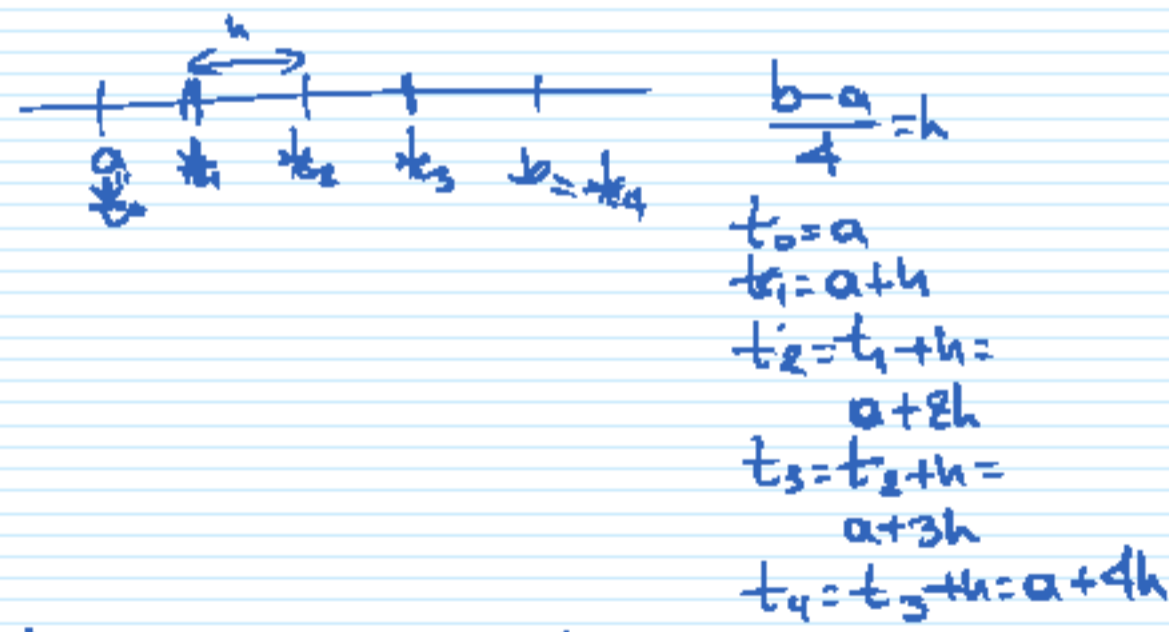 h
a t₁ t₂ t₃ b = t₄
t₀
b-a/4 = h
t₀ = a
t₁ = a+h
t₂ = t₁ + h =
a + 2h
t₃ = t₂ + h =
a + 3h
t₄ = t₃ + h = a + 4h